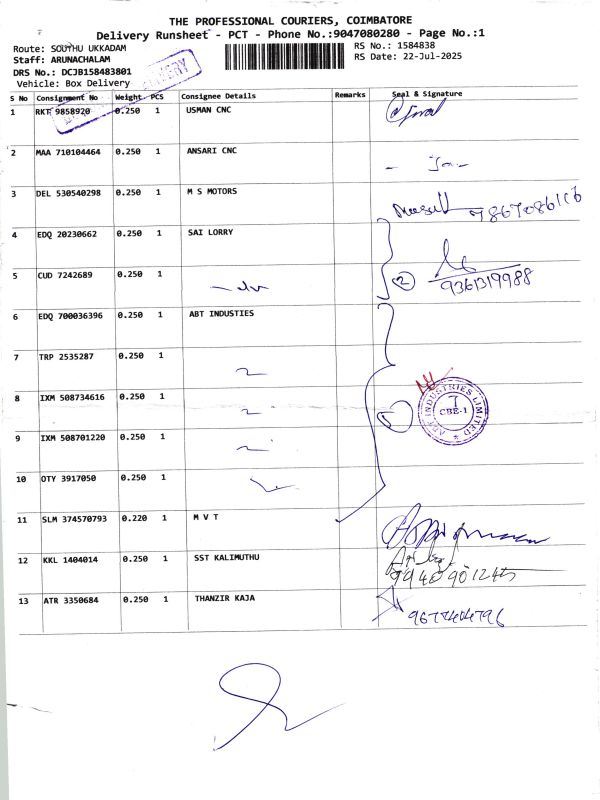 THE PROFESSIONAL COURIERS, COIMBATORE
Delivery Runsheet - PCT - Phone No.:9047080280 - Page No.:1
Route: SOUTHU UKKADAM
RS No.: 1584838
Staff: ARUNACHALAM
RS Date: 22-Jul-2025
DRS No.: DCJB158483801
Vehicle: Box Delivery
S No Consignment No Weight PCS Consignee Details Remarks Seal & Signature
1 RKT 9858920 0.250 1 USMAN CNC
2 MAA 710104464 0.250 1 ANSARI CNC
3 DEL 530540298 0.250 1 M S MOTORS
4 EDQ 20230662 0.250 1 SAI LORRY
5 CUD 7242689 0.250 1
2
9361319988
6 EDQ 700036396 0.250 1 ABT INDUSTIES
7 TRP 2535287 0.250 1
8 IXM 508734616 0.250 1
ABT INDUSTRIES LIMITED
CBE-1
9 IXM 508701220 0.250 1
10 OTY 3917050 0.250 1
11 SLM 374570793 0.220 1 M V T
12 KKL 1404014 0.250 1 SST KALIMUTHU
13 ATR 3350684 0.250 1 THANZIR KAJA
9677404796